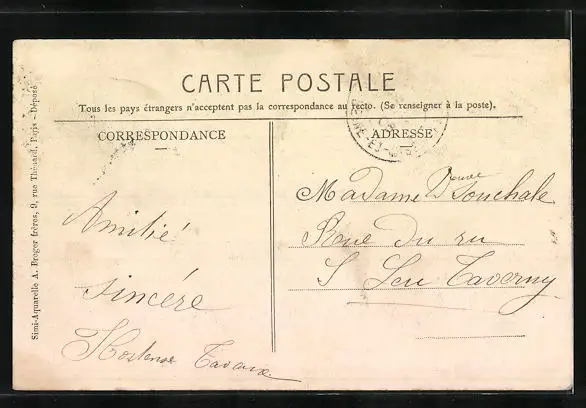 CARTE POSTALE
Tous les pays étrangers n'acceptent pas la correspondance au recto. (Se renseigner à la poste).
CORRESPONDANCE
ADRESSE
Simi-Aquarelle A. Breger frères, 9, rue Thénard, Paris – Déposé
Amitié
sincére
Madame Vve Souchale
Rue du ru
S Leu Taverny